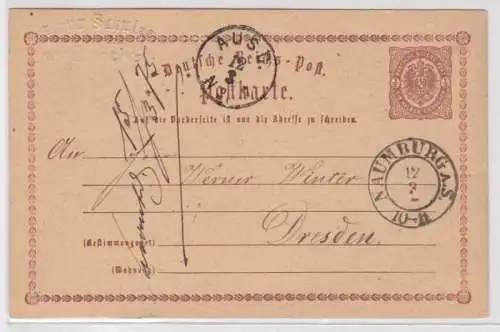 AUSG.
12
3
N.
Deutsche Reichs-Post.
Postkarte.
Auf die Vorderseite ist nur die Adresse zu schreiben.
An
Werner Winter
NAUMBURG A.S.
12
3
10-11
Dresden.
(Bestimmungsort)
(Wohnung)